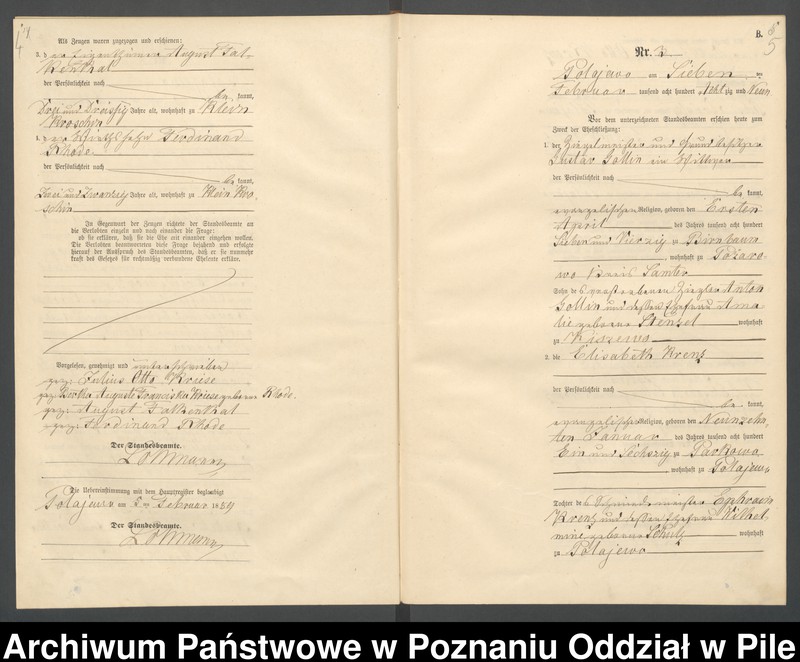 Als Zeugen waren zugezogen und erschienen:
3. der Eigenthümer August Fal-
kenthal
der Persönlichkeit nach
be kannt,
Drei und Dreissig Jahre alt, wohnhaft zu Klein
Kroschin
4. der Wirthssohn Ferdinand
Rhode
der Persönlichkeit nach
be kannt,
Zwei und Zwanzig Jahre alt, wohnhaft zu Klein Kro-
schin
In Gegenwart der Zeugen richtete der Standesbeamte an
die Verlobten einzeln und nach einander die Frage:
ob sie erklären, daß sie die Ehe mit einander eingehen wollen.
Die Verlobten beantworteten diese Frage bejahend und erfolgte
hierauf der Ausspruch des Standesbeamten, daß er sie nunmehr
kraft des Gesetzes für rechtmäßig verbundene Eheleute erkläre.
Vorgelesen, genehmigt und unterschrieben
gez: Julius Otto Kriese
gez: Bertha Auguste Franciska Kriese geborene Rhode.
gez: August Falkenthal
gez: Ferdinand Rhode
Der Standesbeamte.
Lohmann
Die Uebereinstimmung mit dem Hauptregister beglaubigt
Polajewo am 5ten Februar 1889
Der Standesbeamte.
Lohmann
B.
5
Nr. 3
Polajewo am Sieben ten
Februar tausend acht hundert Acht zig und Neun
Vor dem unterzeichneten Standesbeamten erschienen heute zum
Zweck der Eheschließung:
1. der Ziegelmeister und Grundbesitzer
Gustav Gollin ein Wittwer
der Persönlichkeit nach
be kannt,
evangelischer Religion, geboren den Ersten
April des Jahres tausend acht hundert
Sieben und Vierzig zu Birnbaum
, wohnhaft zu Pozaro-
wo Kreis Samter
Sohn des verstorbenen Ziegler Anton
Gollin und dessen Ehefrau Ama-
lie geborene Stenzel wohnhaft
zu Kiszewo
2. die Elisabeth Krenz
der Persönlichkeit nach
be kannt,
evangelischer Religion, geboren den Neunzehn
ten Januar des Jahres tausend acht hundert
Ein und Sechszig zu Parkowo
, wohnhaft zu Polajewo
Tochter des Schmiedemeister Ephraim
Krenz und dessen Ehefrau Wilhel-
mine geborene Schulz wohnhaft
zu Polajewo
Archiwum Państwowe w Poznaniu Oddział w Pile